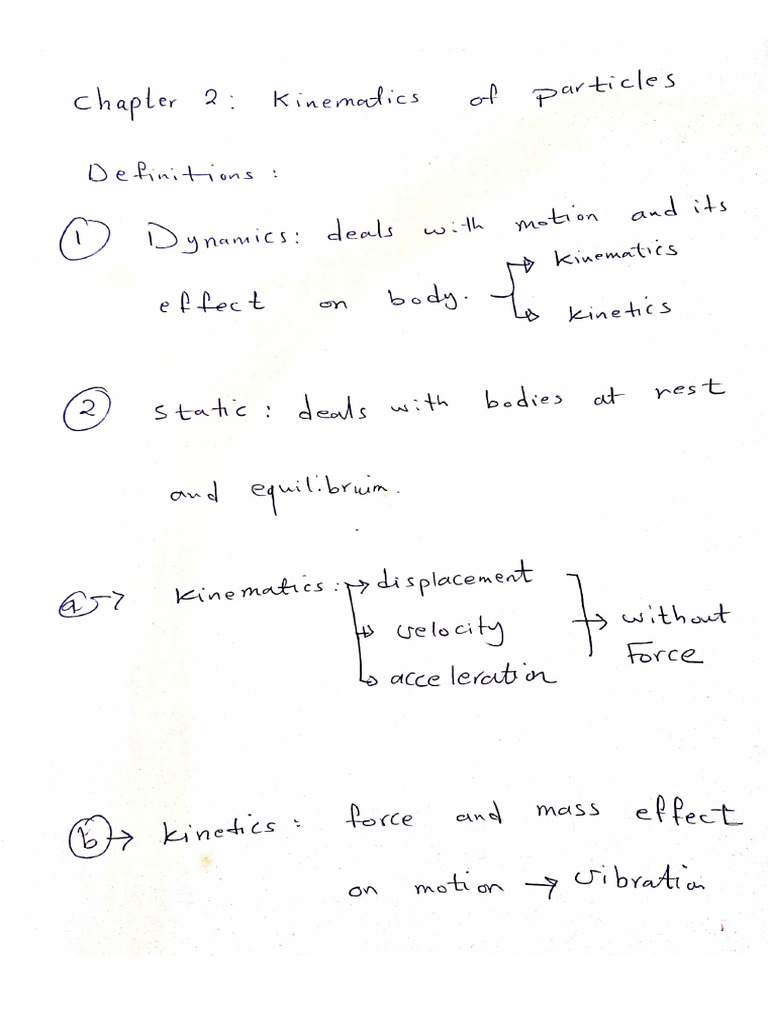 Chapter 2: Kinematics of particles
Definitions:
① Dynamics: deals with motion and its
effect on body. → kinematics
→ kinetics
② Static: deals with bodies at rest
and equilibrium.
ⓐ → Kinematics: → displacement
→ velocity → without
→ acceleration Force
ⓑ → kinetics: force and mass effect
on motion → vibration